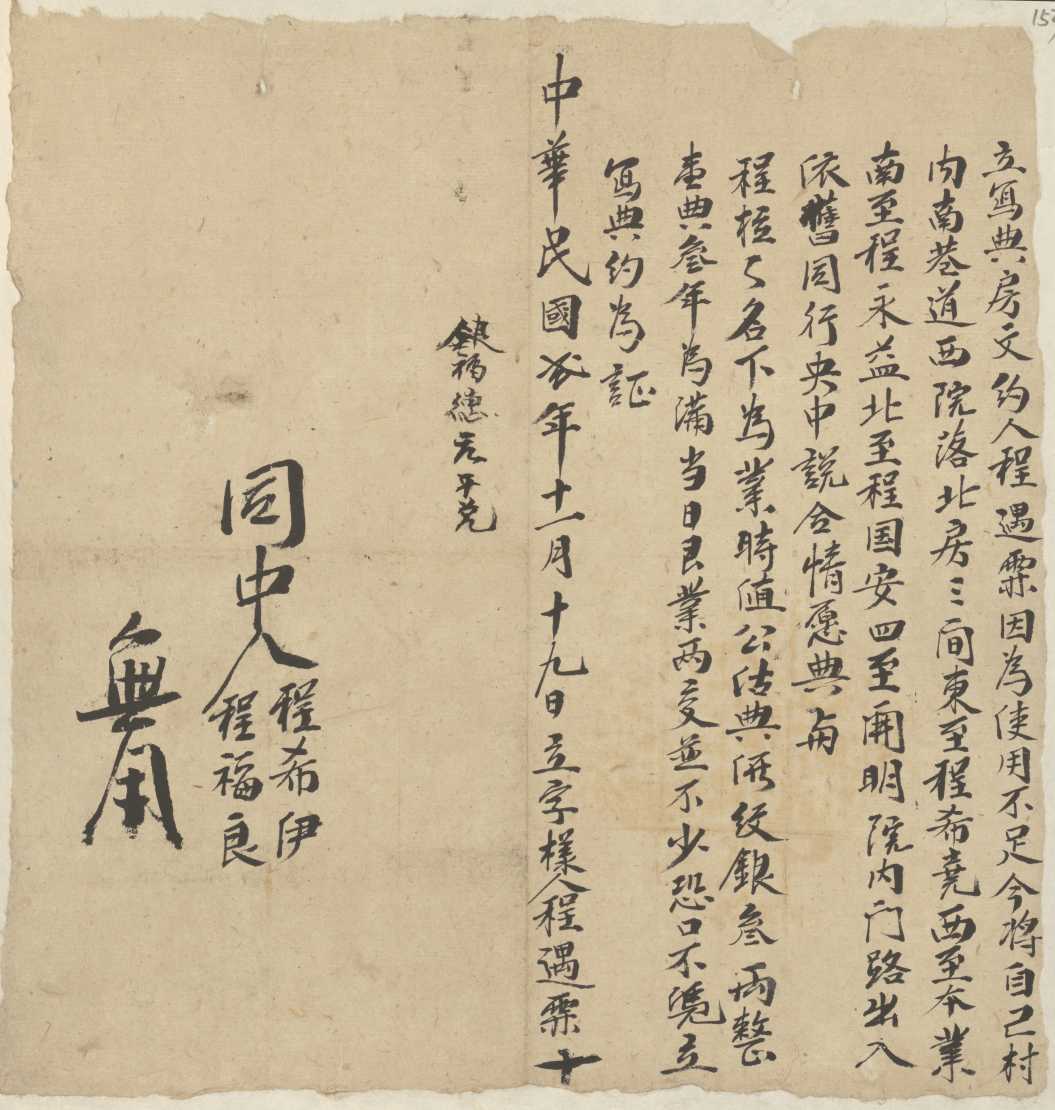 立寫典房文約人程遇霖因為使用不足今將自己村
内南巷道西院落北房三间東至程希堯西至本業
南至程永益北至程国安四至開明院内门路出入
依舊同行央中説合情愿典與
程 名下為業時値公估典價纹銀叁兩整
言典叁年為滿当日艮業两交並不少恐口不凭立
寫典約為証
中華民國貳年十一月十九日立字樣人程遇霖十
銀福德元平兌
同中人
程希伊
程福良
無用